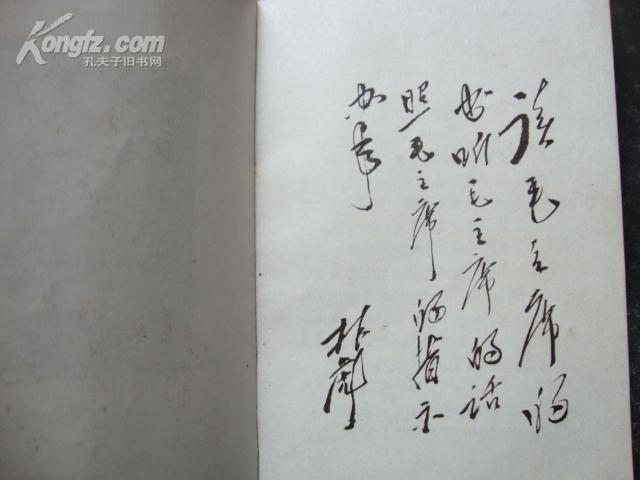 Kongfz.com
孔夫子旧书网
读毛主席的
书听毛主席的话
照毛主席的指示
办事
林彪